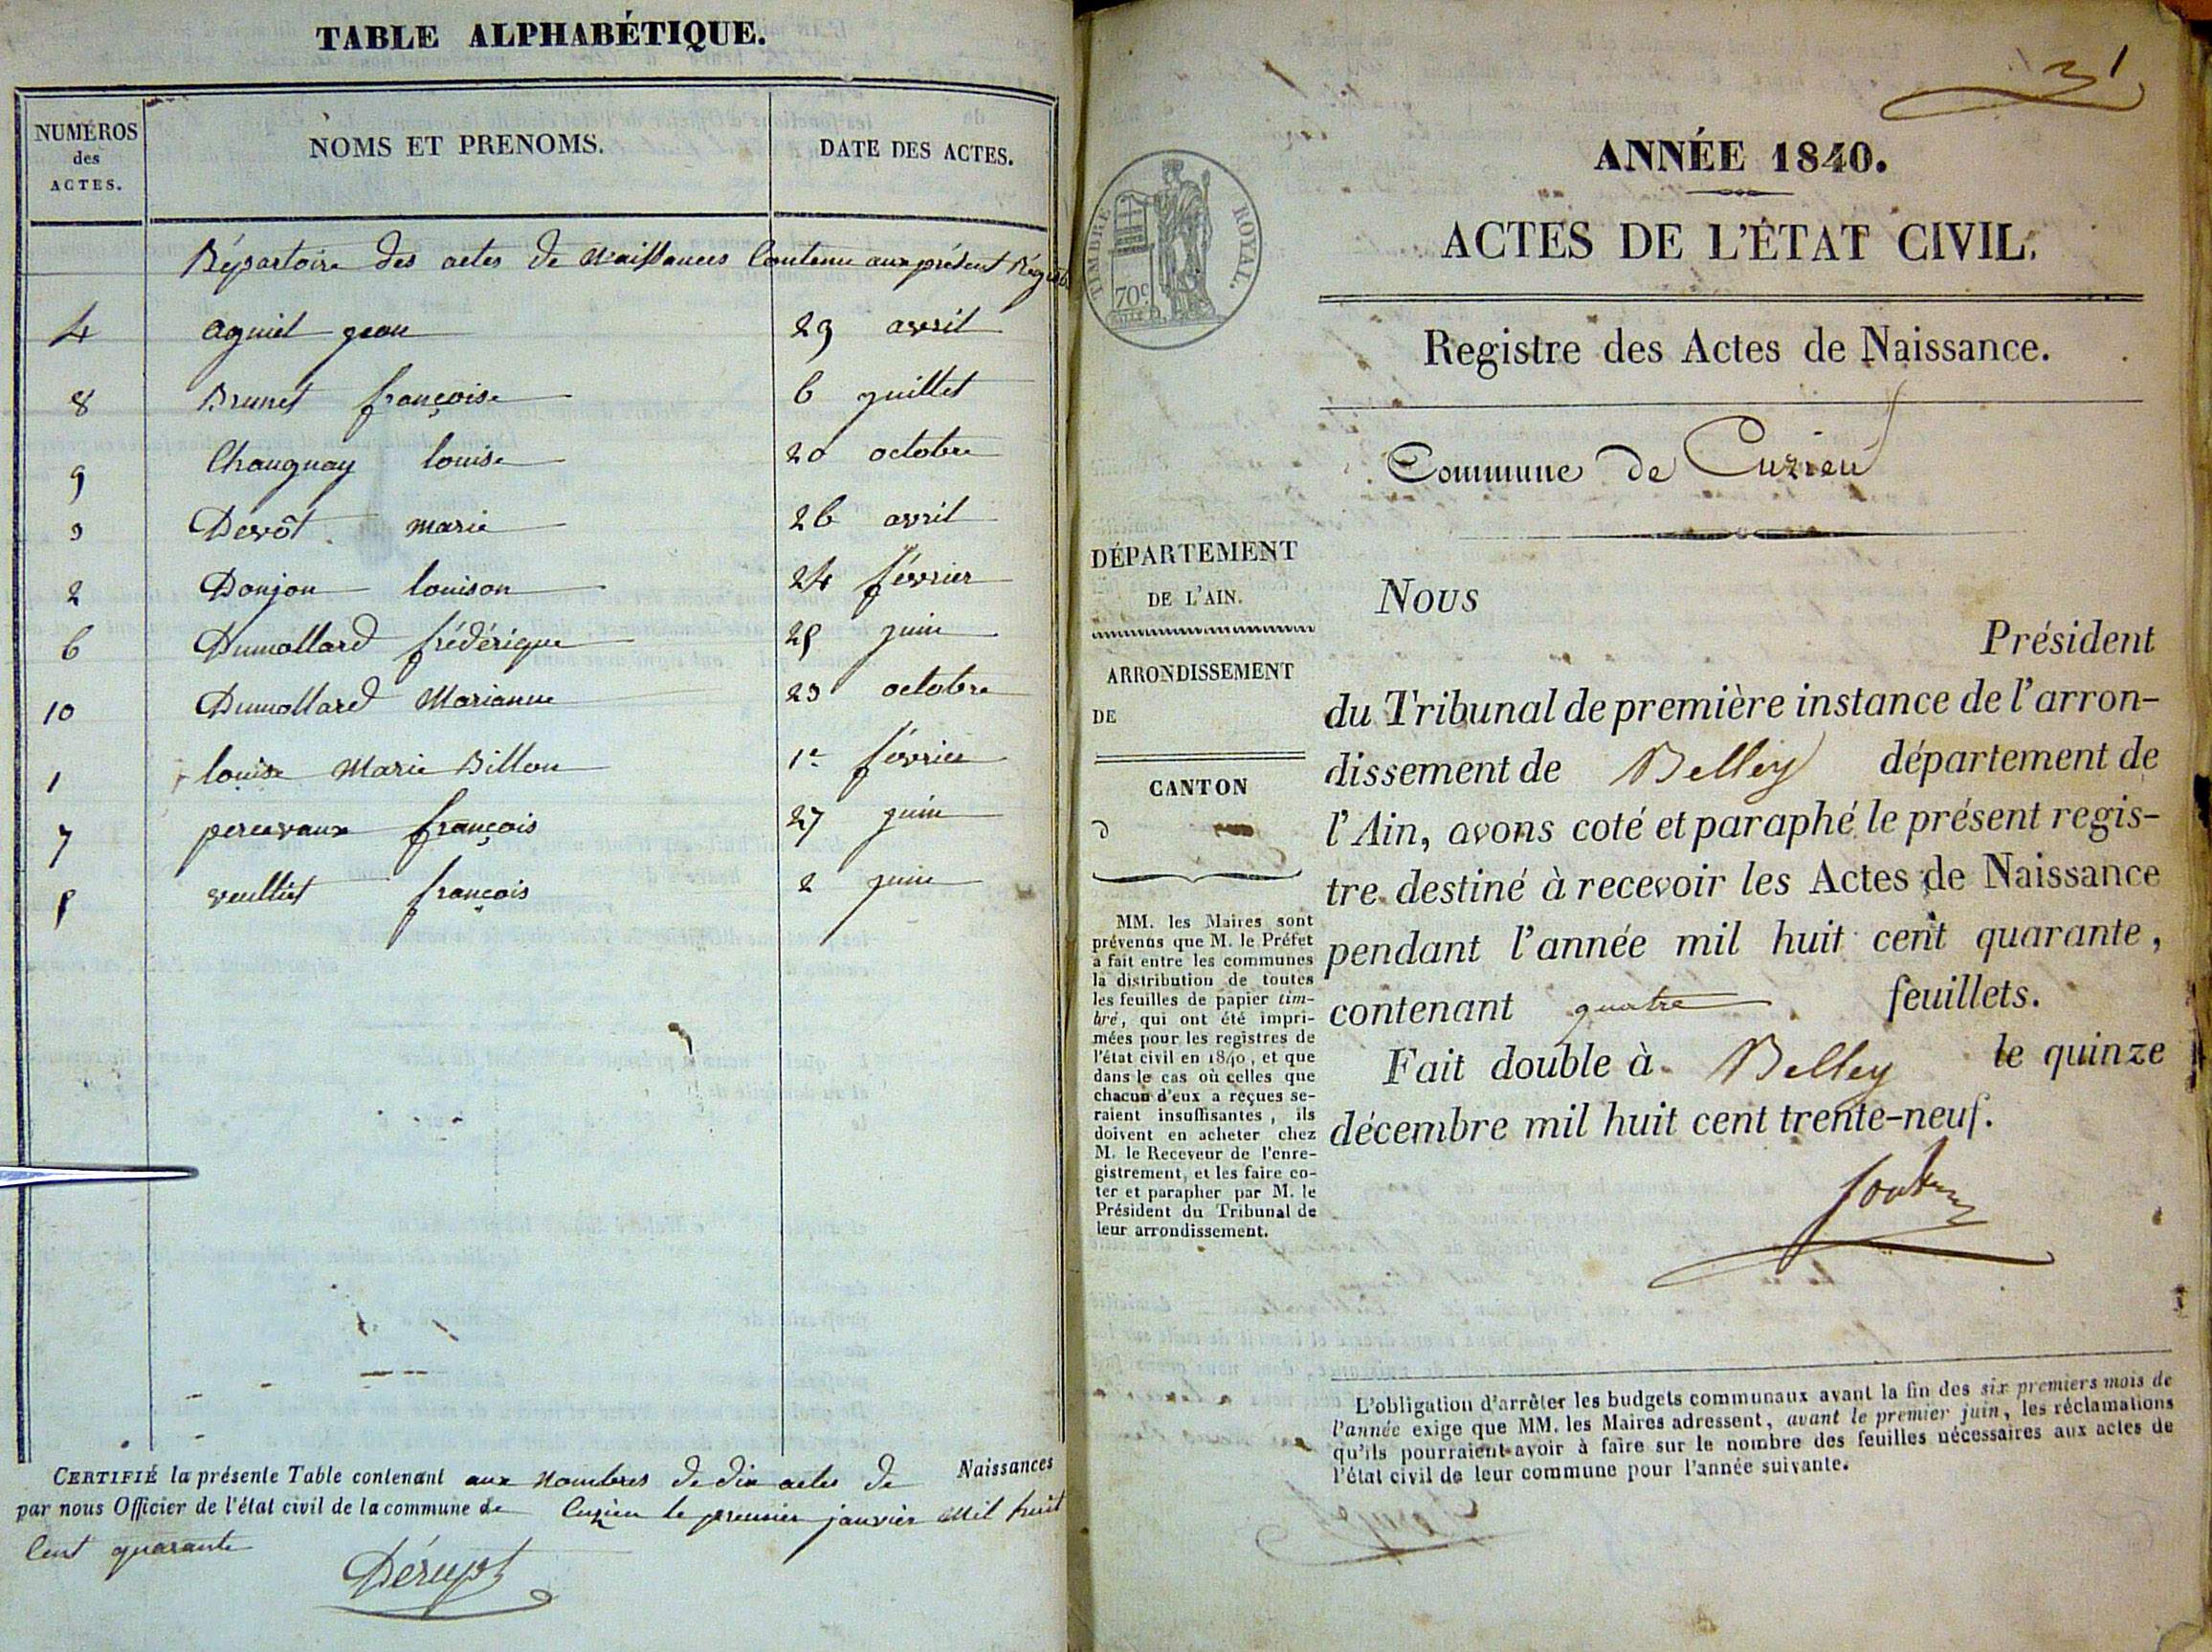 TABLE ALPHABÉTIQUE.
NUMÉROS des ACTES. NOMS ET PRENOMS. DATE DES ACTES.
Répartoire des actes de Naissances Contenu aux présent Régist
4 aguiel jean 29 avril
8 Brunet françoise 6 juillet
9 Changnay louise 20 octobre
3 Devôt marie 26 avril
2 Donjon louison 24 février
6 Dumollard frédérique 25 juin
10 Dumollard Marianne 23 octobre
1 louise Marie Billon 1er février
7 percevaux françois 27 juin
5 veulliet françois 2 juin
CERTIFIÉ la présente Table contenant aux Nombres de dix actes de Naissances
par nous Officier de l'état civil de la commune de Cuzieu le premier janvier Mil huit
Cent quarante
1
ANNÉE 1840.
TIMBRE ROYAL.
70c
ACTES DE L'ÉTAT CIVIL.
Registre des Actes de Naissance.
Commune de Cuzieu
DÉPARTEMENT
DE L'AIN.
ARRONDISSEMENT
DE
CANTON
d
MM. les Maires sont
prévenus que M. le Préfet
a fait entre les communes
la distribution de toutes
les feuilles de papier tim-
bré, qui ont été impri-
mées pour les registres de
l'état civil en 1840, et que
dans le cas où celles que
chacun d'eux a reçues se-
raient insuffisantes, ils
doivent en acheter chez
M. le Receveur de l'enre-
gistrement, et les faire co-
ter et parapher par M. le
Président du Tribunal de
leur arrondissement.
Nous
Président
du Tribunal de première instance de l'arron-
dissement de Belley département de
l'Ain, avons coté et paraphé le présent regis-
tre destiné à recevoir les Actes de Naissance
pendant l'année mil huit cent quarante,
contenant quatre feuillets.
Fait double à Belley le quinze
décembre mil huit cent trente-neuf.
L'obligation d'arrêter les budgets communaux avant la fin des six premiers mois de
l'année exige que MM. les Maires adressent, avant le premier juin, les réclamations
qu'ils pourraient avoir à faire sur le nombre des feuilles nécessaires aux actes de
l'état civil de leur commune pour l'année suivante.